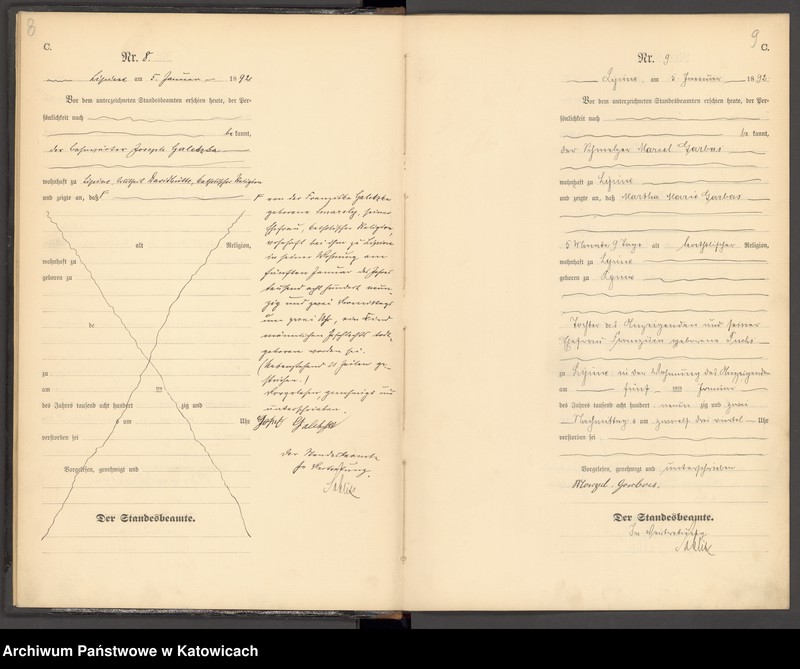 8
C.
Nr. 8.
Lipine am 5. Januar 1892
Vor dem unterzeichneten Standesbeamten erschien heute, der Per-
sönlichkeit nach
bekannt,
der Joseph Galetzka
wohnhaft zu Lipine, katholischer Religion
und zeigte an, daß
alt Religion,
wohnhaft zu
geboren zu
de
zu
am ten
des Jahres tausend acht hundert zig und
s um Uhr
verstorben sei
Vorgelesen, genehmigt und
Der Standesbeamte.
von der Franziska Galetzka
geborene seiner
Ehefrau, katholischer Religion,
wohnhaft bei ihm zu Lipine
in seiner Wohnung am
fünften Januar des Jahres
tausend acht hundert neun-
zig und zwei Vormittags
um zwei Uhr, ein Kind
männlichen Geschlechts tod-
geboren worden sei.
(Nebenstehend Zeilen ge-
strichen.)
Vorgelesen, genehmigt und
unterschrieben.
Josef Galetzka
Der Standesbeamte
In Vertretung.
9
C.
Nr. 9
Lipine am 5. Januar 1892
Vor dem unterzeichneten Standesbeamten erschien heute, der Per-
sönlichkeit nach
bekannt,
der Schmelzer Marcel Garbas
wohnhaft zu Lipine
und zeigte an, daß Martha Marie Garbas
5 Monate 9 Tage alt katholischer Religion,
wohnhaft zu Lipine
geboren zu Lipine
Tochter des Anzeigenden und seiner
Ehefrau geborene
zu Lipine in der Wohnung des Anzeigenden
am fünf ten Januar
des Jahres tausend acht hundert neun zig und zwei
Nachmittag s um zwölf drei viertel Uhr
verstorben sei
Vorgelesen, genehmigt und unterschrieben
Garbas.
Der Standesbeamte.
In Vertretung
Archiwum Państwowe w Katowicach